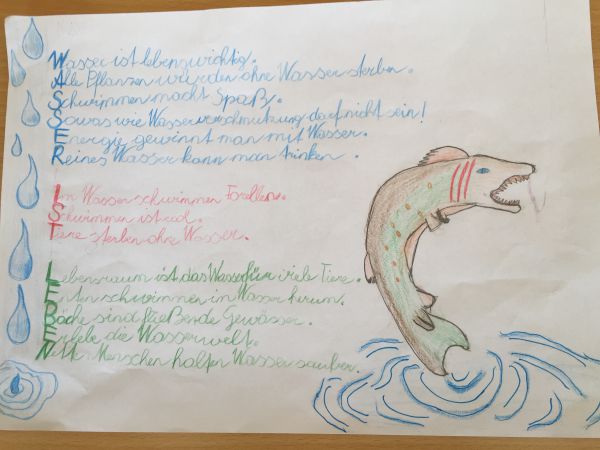 Wasser ist lebenswichtig.
Alle Pflanzen würden ohne Wasser sterben.
Schwimmen macht Spaß.
Sowas wie Wasserverschmutzung darf nicht sein!
Energie gewinnt man mit Wasser.
Reines Wasser kann man trinken.
Im Wasser schwimmen Forellen.
Schwimmen ist cool.
Tiere sterben ohne Wasser.
Lebensraum ist das Wasser für viele Tiere.
Enten schwimmen im Wasser herum.
Bäche sind fließende Gewässer.
Erlebe die Wasserwelt.
Menschen halten Wasser sauber.